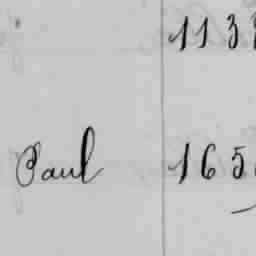 113
Paul 165